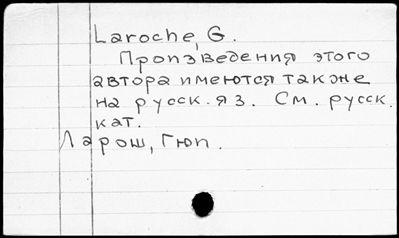 Laroche, G.
Произведения этого
автора имеются также
на русск. яз. См. русск.
кат.
Ларош, Гюп.